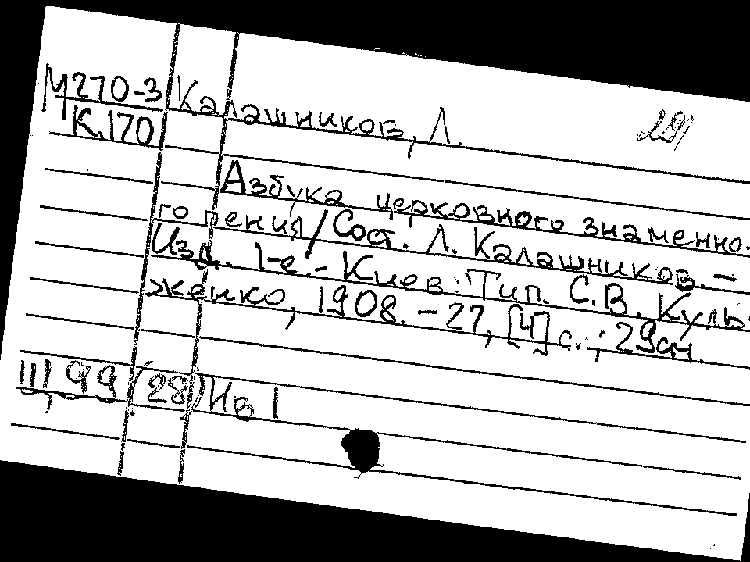 М270-3 Калашников, Л.
К.170
291
Азбука церковного знаменно-
го пения/Сост. Л. Калашников. –
Изд. 1-е. – Киев: Тип. С.В. Куль-
женко, 1908. – 27, [4] с.; 29см.
III 99 (28) Нв 1